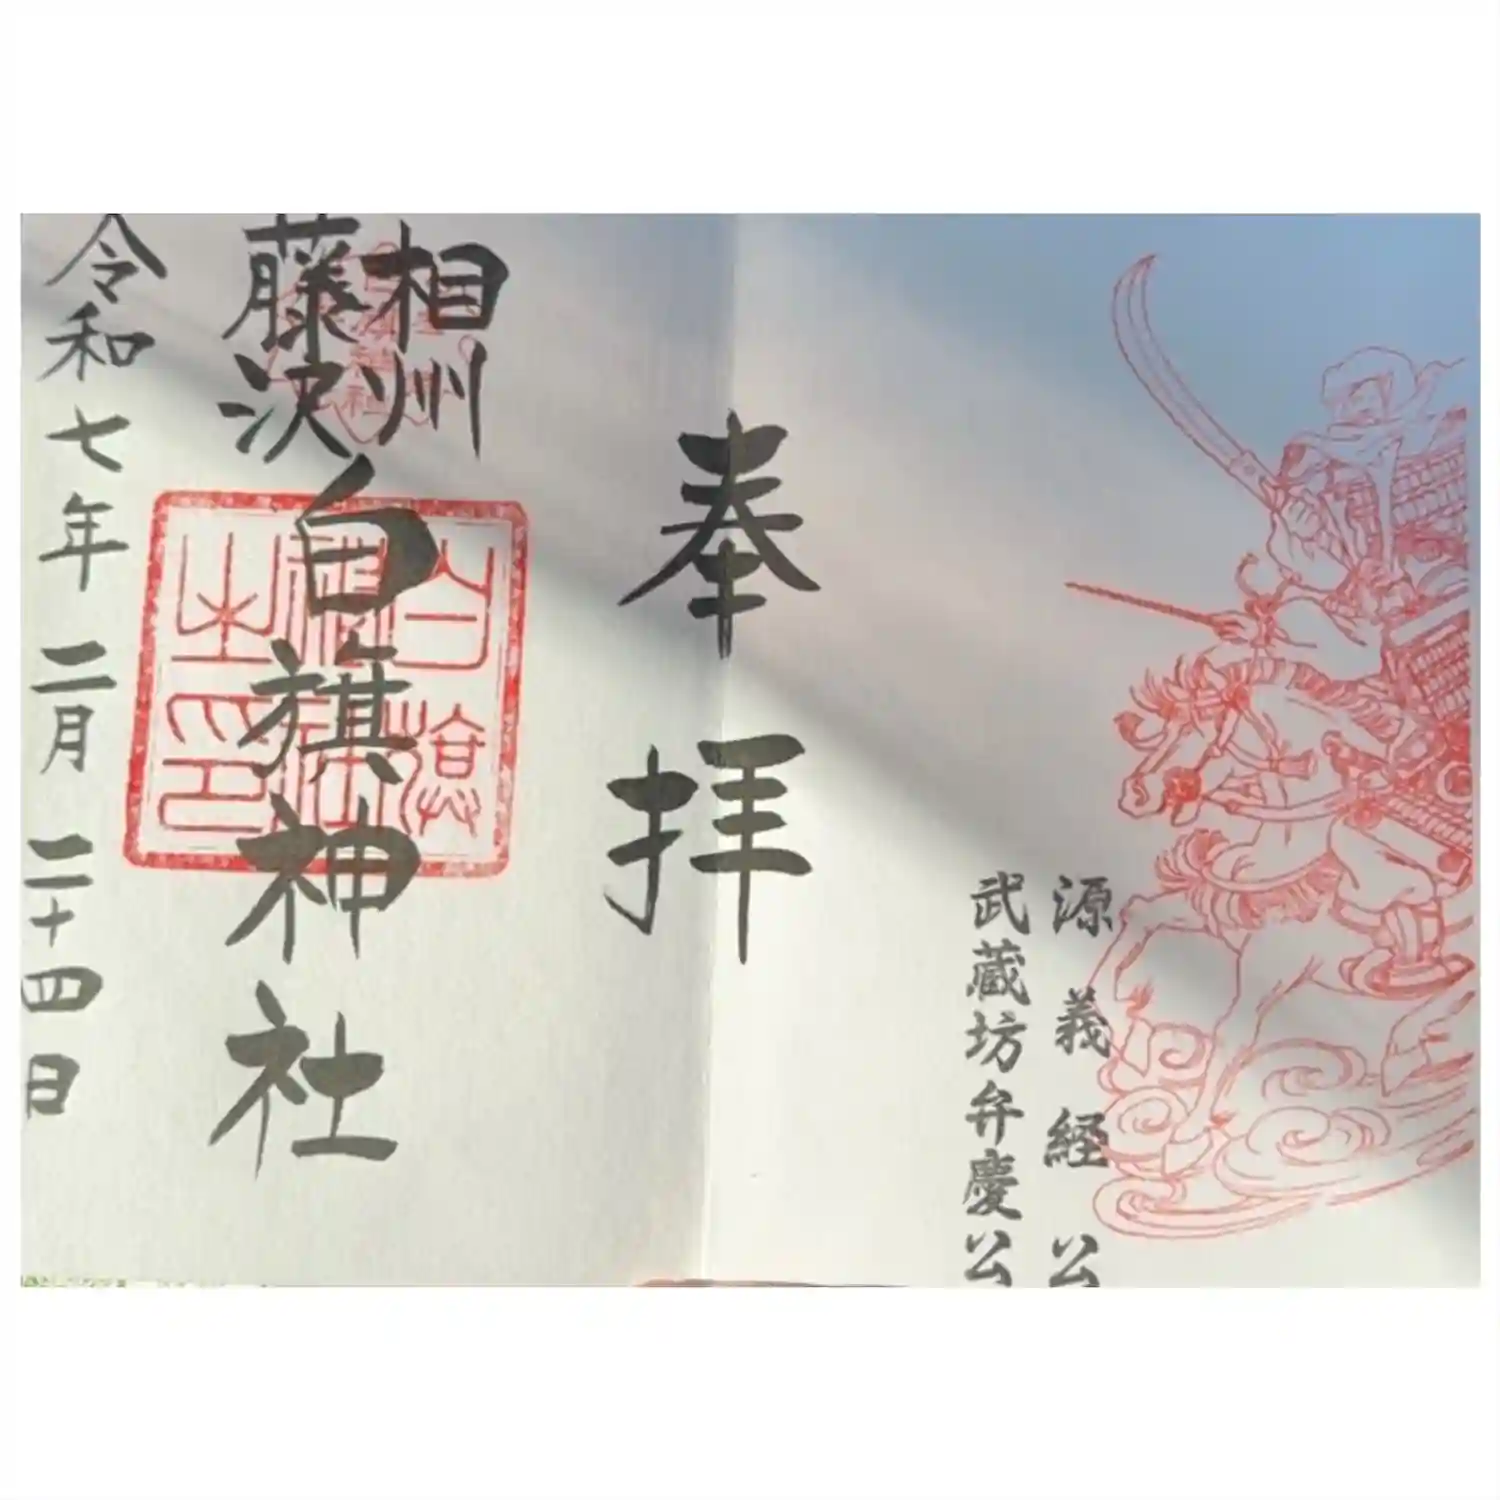 源義経公
武蔵坊弁慶公
奉拝
相州
藤沢
白旗神社
白旗神社之印
令和七年二月二十四日